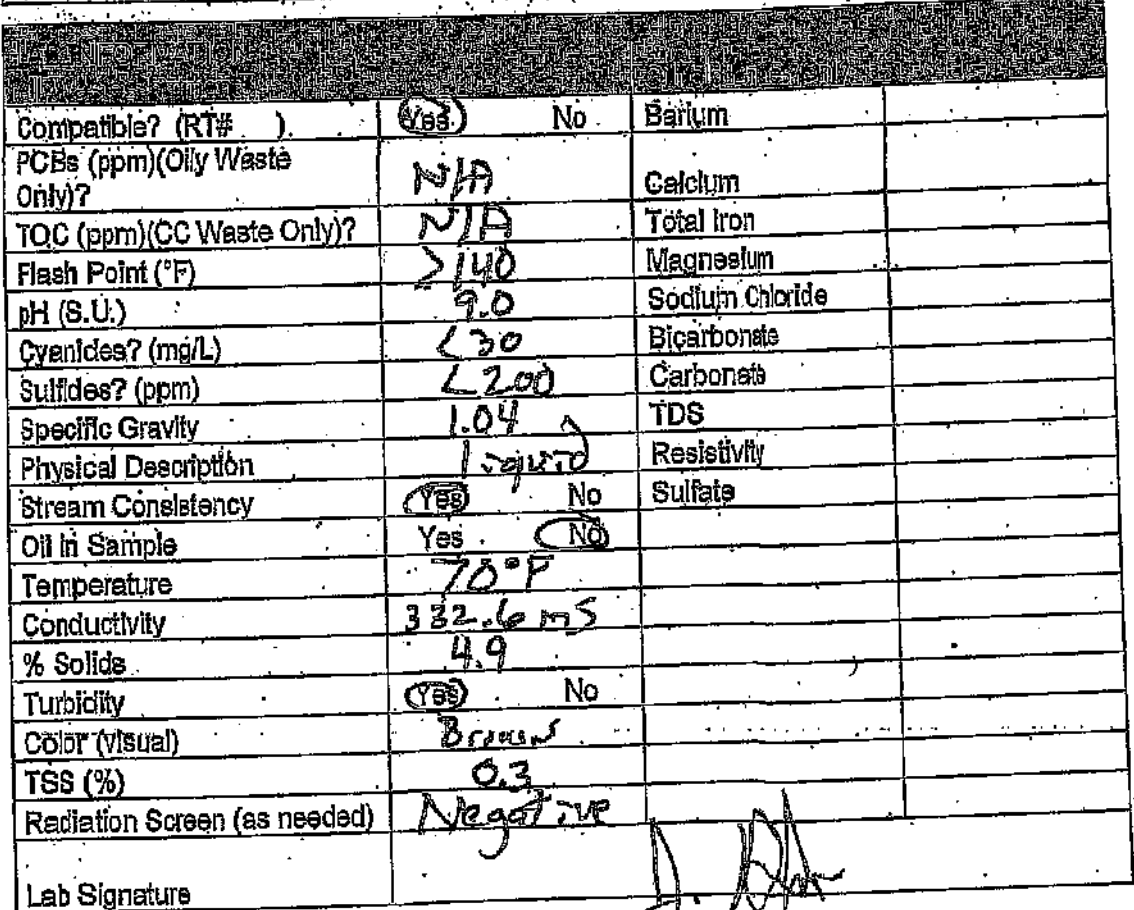 Compatible? (RT# ) Yes No Barium
PCBs (ppm)(Oily Waste
Only)? N/A Calcium
TOC (ppm)(CC Waste Only)? N/A Total Iron
Flash Point (°F) >140 Magnesium
pH (S.U.) 9.0 Sodium Chloride
Cyanides? (mg/L) <30 Bicarbonate
Sulfides? (ppm) <200 Carbonate
Specific Gravity 1.04 TDS
Physical Description liquid Resistivity
Stream Consistency Yes No Sulfate
Oil in Sample Yes No
Temperature 70°F
Conductivity 332.6 mS
% Solids 4.9
Turbidity Yes No
Color (visual) Brown
TSS (%) 0.3
Radiation Screen (as needed) Negative
Lab Signature